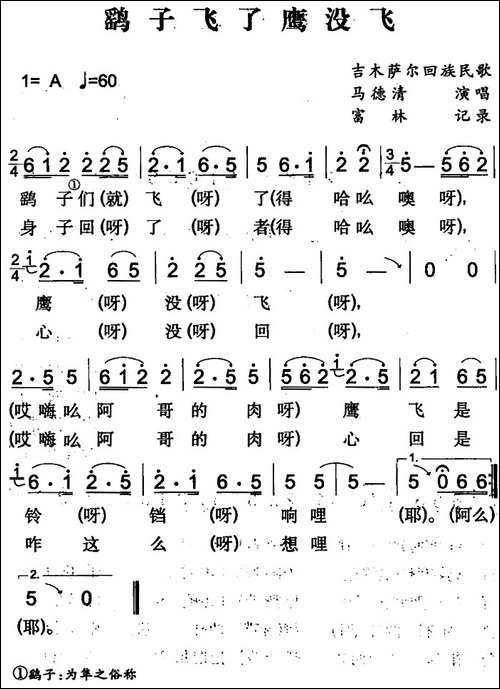 鹞子飞了鹰没飞
1= A ♩=60
吉木萨尔回族民歌
马德清 演唱
富林 记录
2/4 6 1 2 2 2 5 | 2 · 1 6 · 5 | 5 6 · 1 | 2 2 | 3/4 5 — 5 6 2 |
①
鹞子们(就)飞(呀)了(得哈么噢呀),
身子回(呀)了(呀)者(得哈么噢呀),
2/4 i 2 · 1 6 5 | 5 · 2 2 5 | 5 — | 5 — | 0 0 |
鹰(呀)没(呀)飞(呀),
心(呀)没(呀)回(呀),
2 · 5 5 | 6 1 2 2 | 2 · 5 5 | 5 6 2 i 2 · 5 | 2 1 6 5 |
(哎嗨么阿哥的肉呀)鹰飞是
(哎嗨么阿哥的肉呀)心回是
i 6 · 1 2 · 5 | 2 · 1 2 | 6 · 5 | 5 5 | 5 — | 1. 5 0 6 6 :|
铃(呀)铛(呀)响哩(耶)。(阿么)
咋这么(呀)想哩
2. 5 0 ‖
(耶)。
①鹞子:为隼之俗称